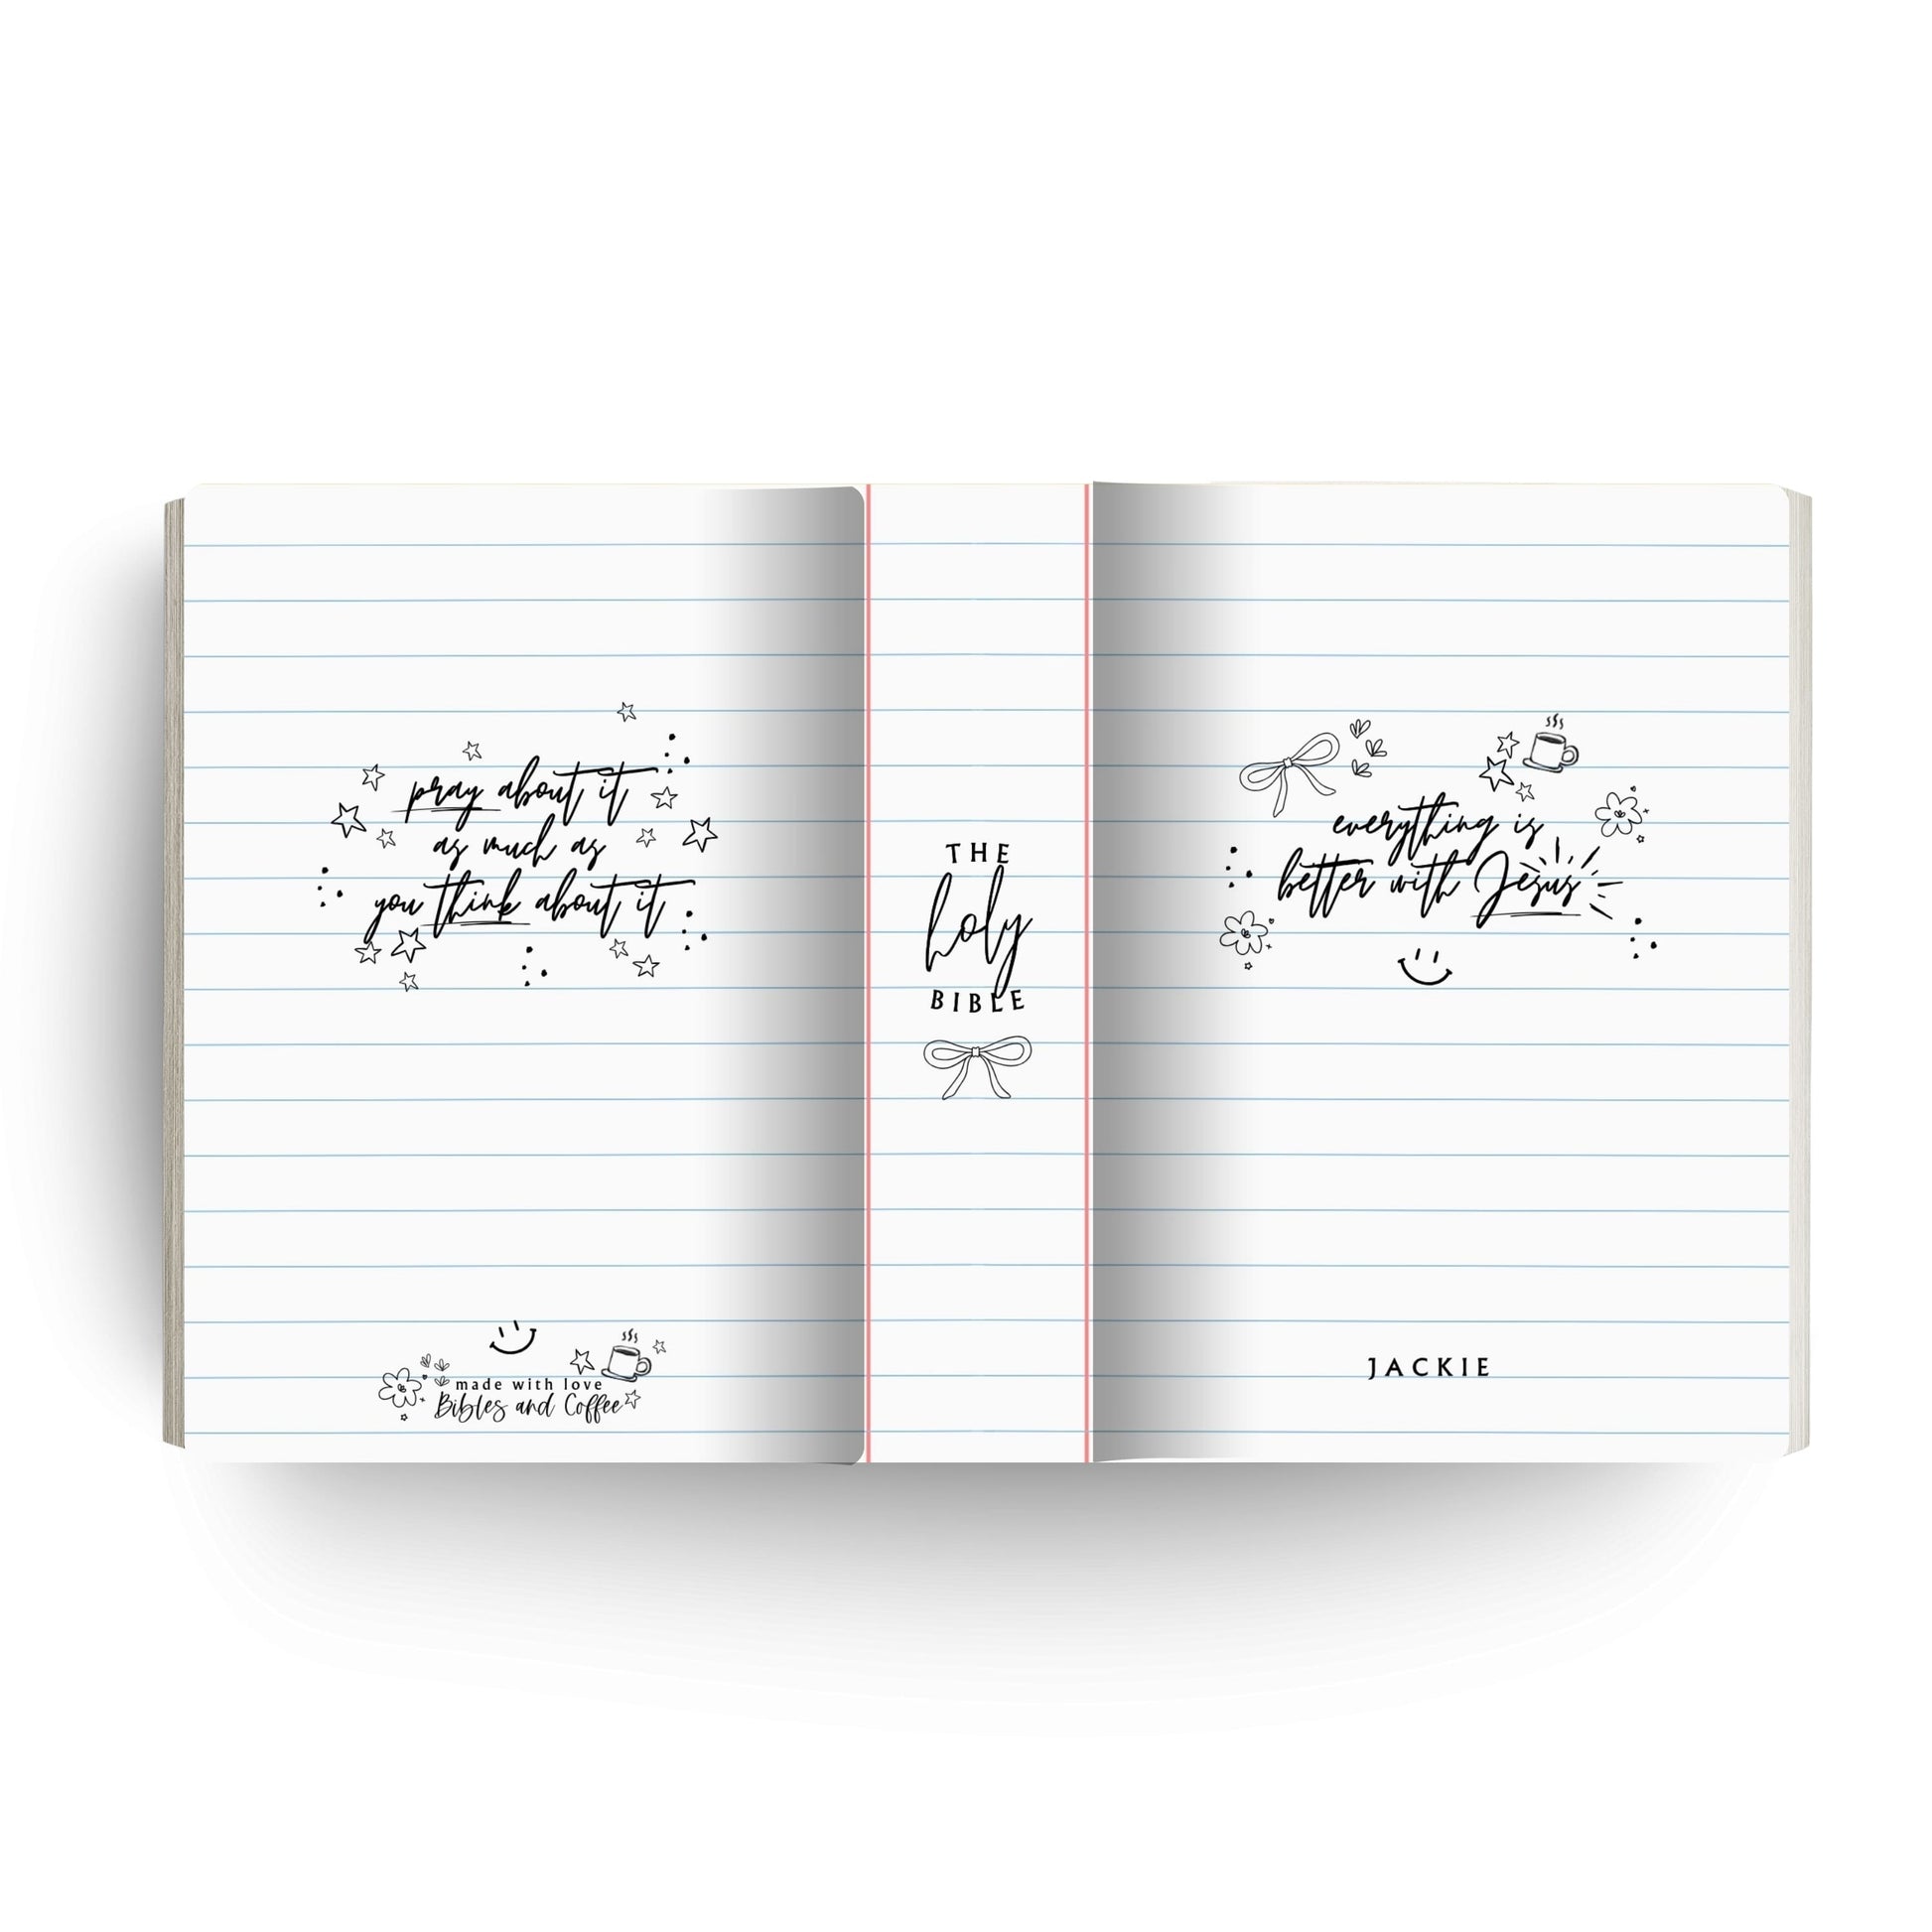 pray about it
as much as
you think about it
made with love
Bibles and Coffee
THE
holy
BIBLE
everything is
better with Jesus
JACKIE